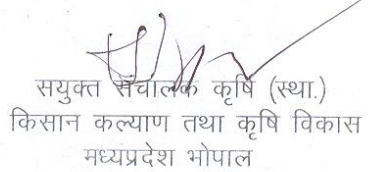 सयुक्त संचालक कृषि (स्था.)
किसान कल्याण तथा कृषि विकास
मध्यप्रदेश भोपाल